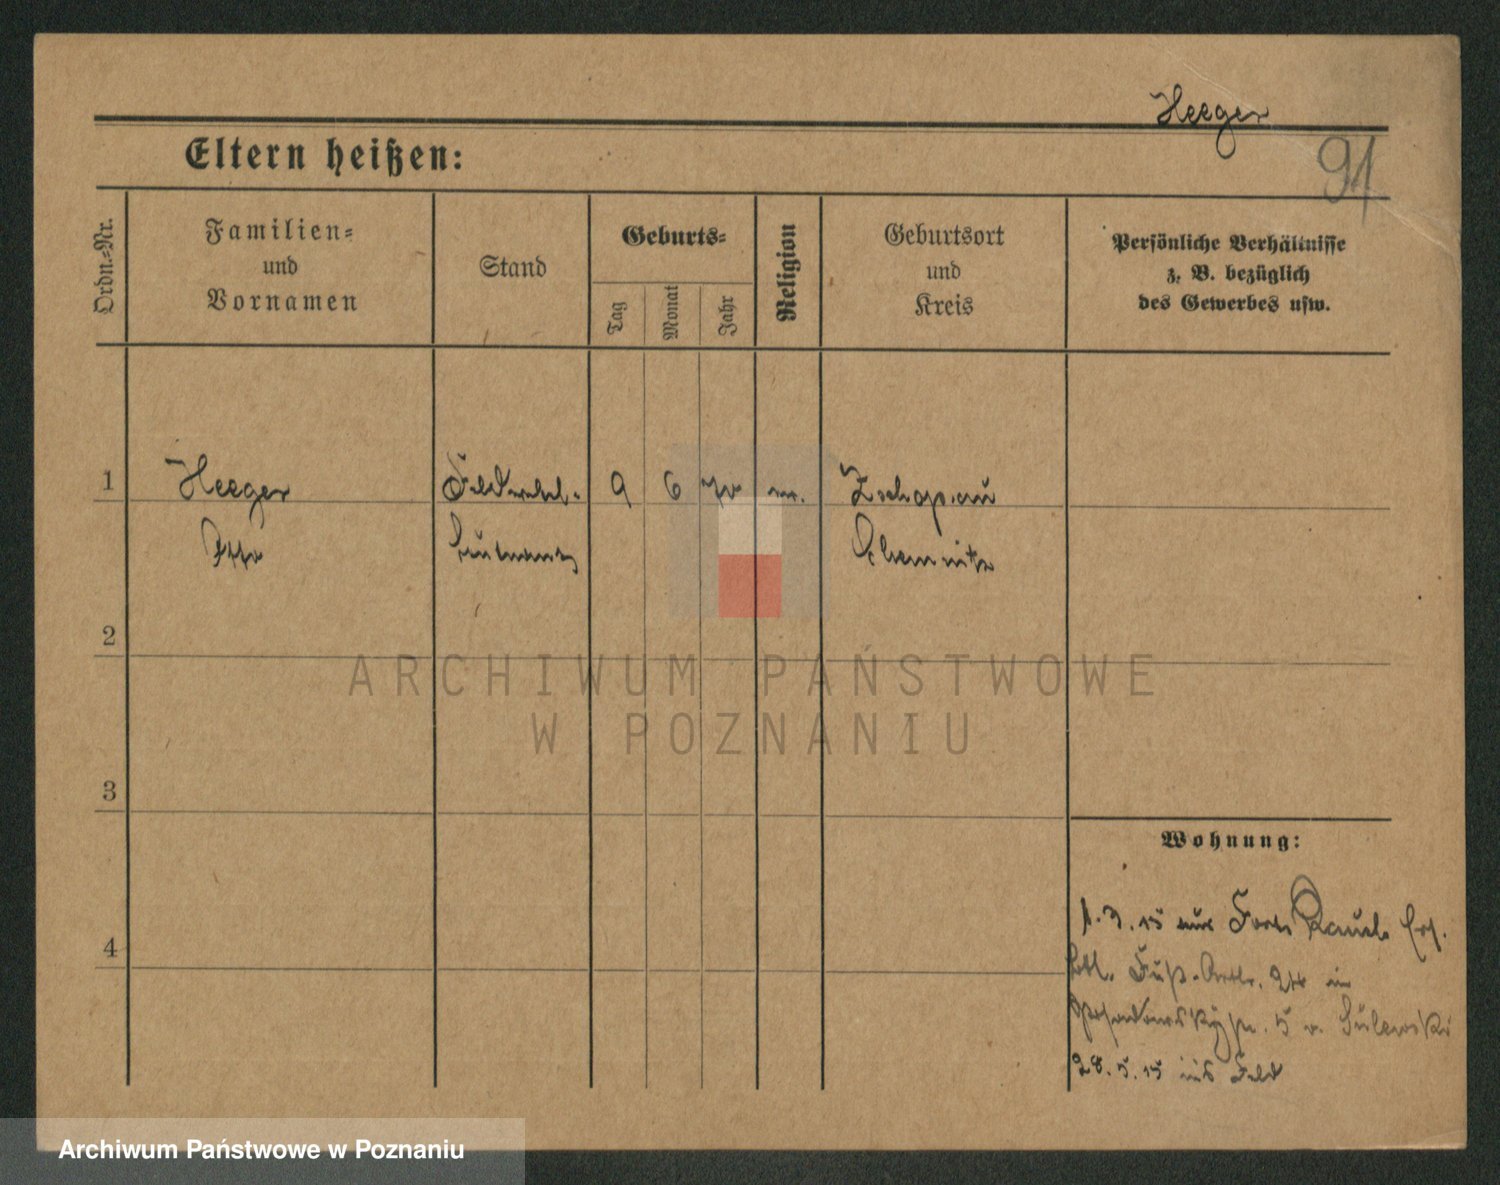 Heeger
91
Eltern heißen:
Ordn.-Nr.
Familien-
und
Vornamen
Stand
Geburts-
Tag
Monat
Jahr
Religion
Geburtsort
und
Kreis
Persönliche Verhältnisse
z. B. bezüglich
des Gewerbes usw.
1
Heeger
Otto
Feldwebel-
Leutnant
9
6
70
Zschopau
Chemnitz
2
3
4
Wohnung:
1.3.15 aus Fort Rauch
Fuß-Artl. in
5 v. Sulewski
28.5.15 ins Feld
ARCHIWUM PAŃSTWOWE
W POZNANIU
Archiwum Państwowe w Poznaniu